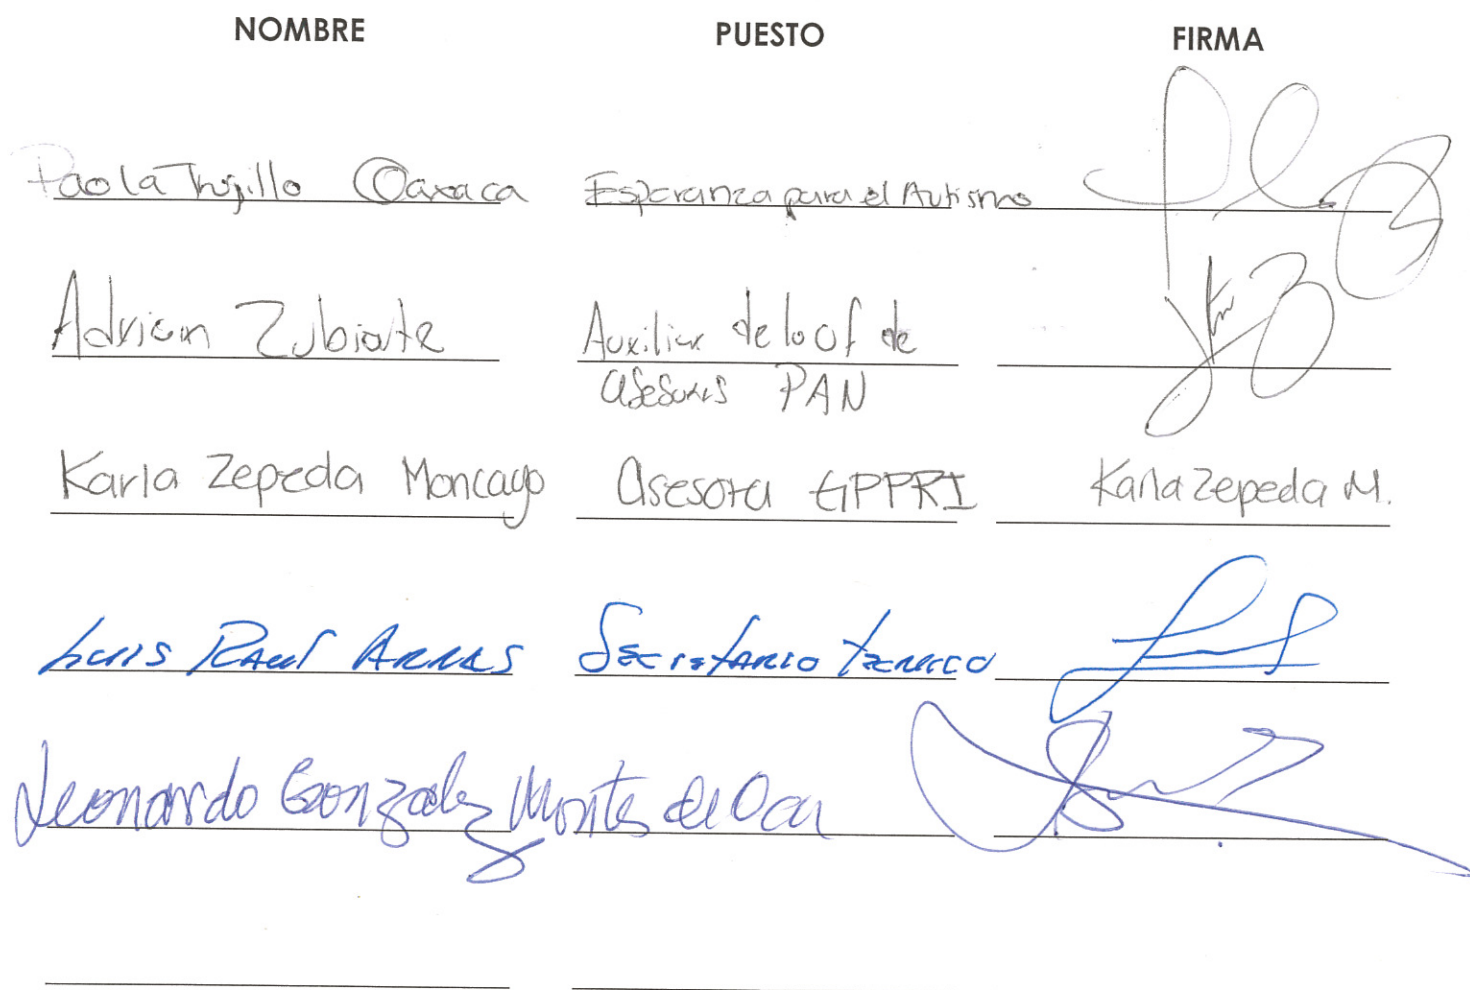 NOMBRE PUESTO FIRMA
Paola Trujillo Oaxaca Esperanza para el Autismo
Adrian Zubiate Auxiliar de la Of de
asesores PAN
Karla Zepeda Moncayo asesora GPPRI Karla Zepeda M.
Luis Raul Arras Secretario Tecnico
Leonardo Gonzalez Montes de Oca